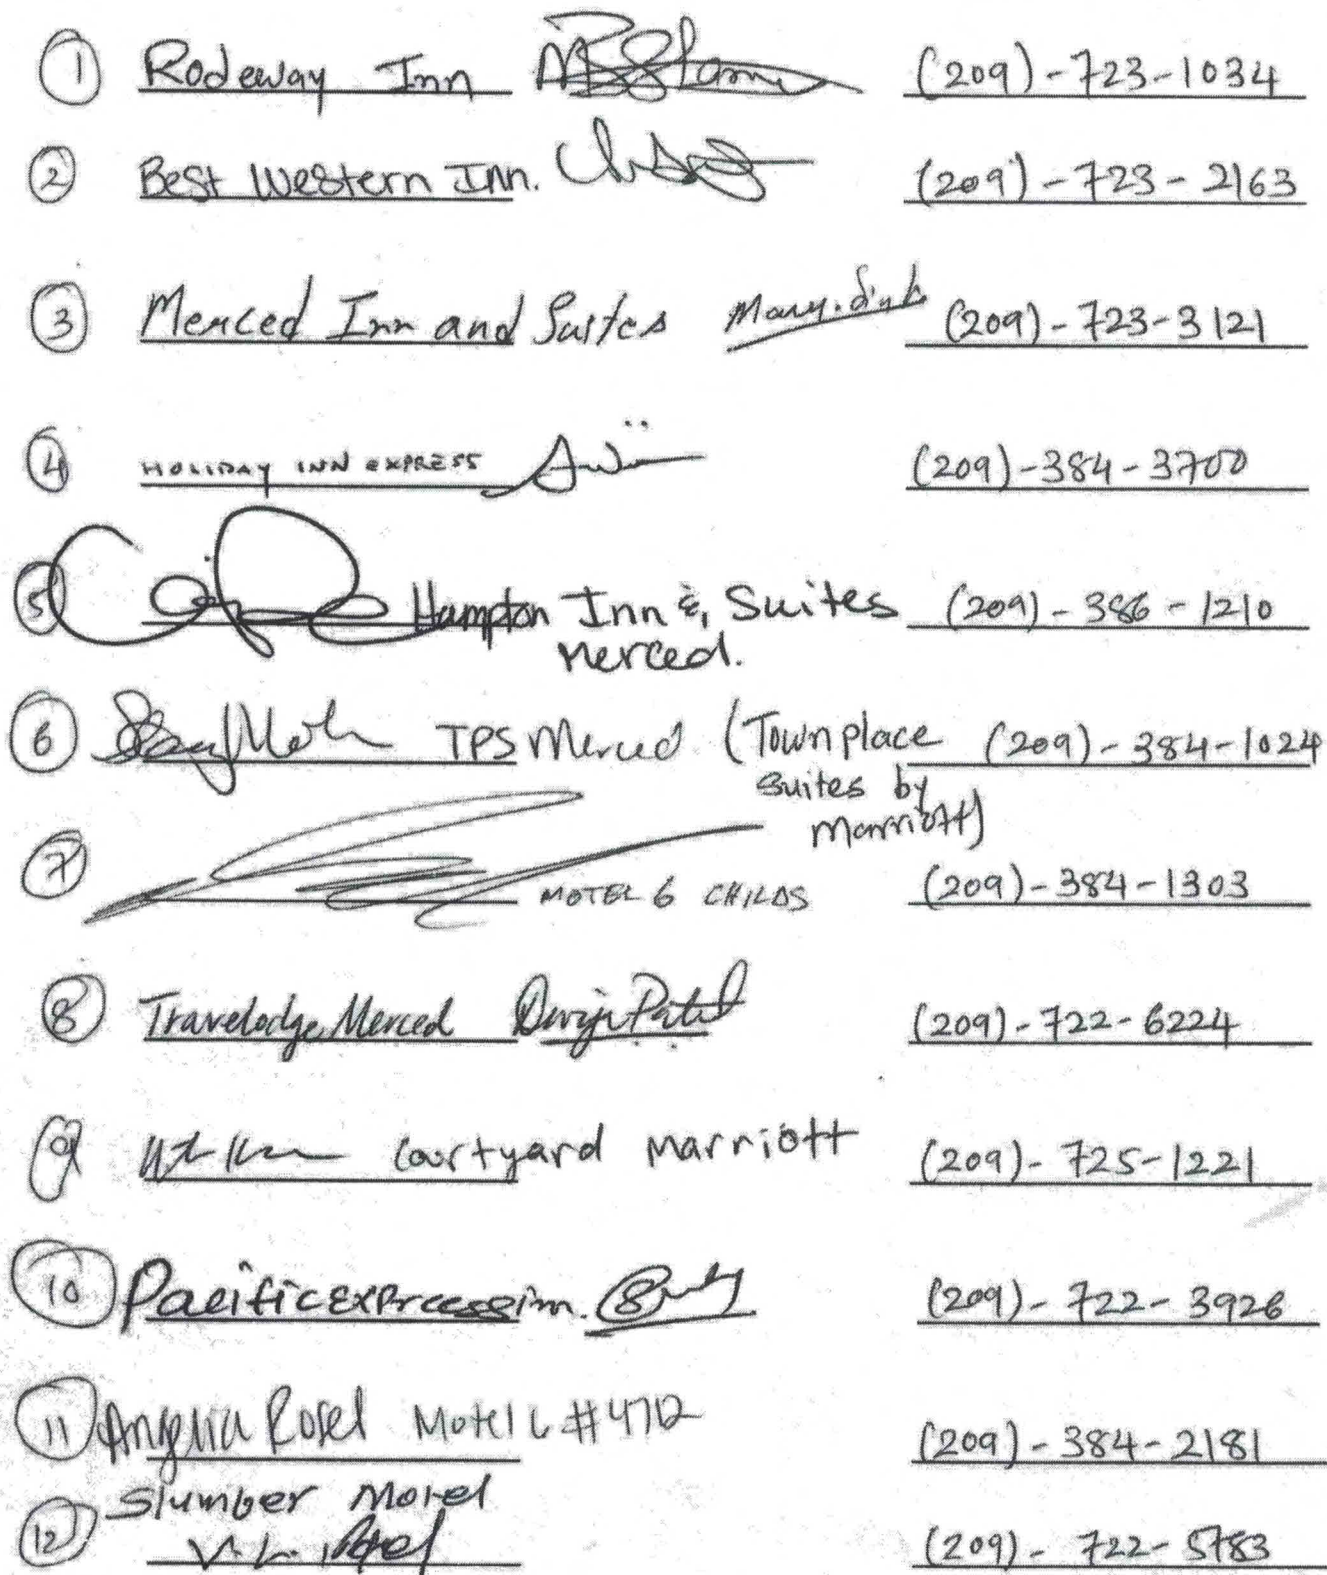 1 Rodeway Inn (209)-723-1034
2 Best Western Inn. (209)-723-2163
3 Merced Inn and Suites (209)-723-3121
4 HOLIDAY INN EXPRESS (209)-384-3700
5 Hampton Inn & Suites (209)-386-1210
Merced.
6 TPS Merced (Townplace (209)-384-1024
Suites by
Marriott)
7 MOTEL 6 CHILDS (209)-384-1303
8 Travelodge Merced Patel (209)-722-6224
9 Courtyard Marriott (209)-725-1221
10 Pacific Express inn. (209)-722-3926
11 Motel 6 #4712 (209)-384-2181
Slumber Motel
12 Patel (209)-722-5783